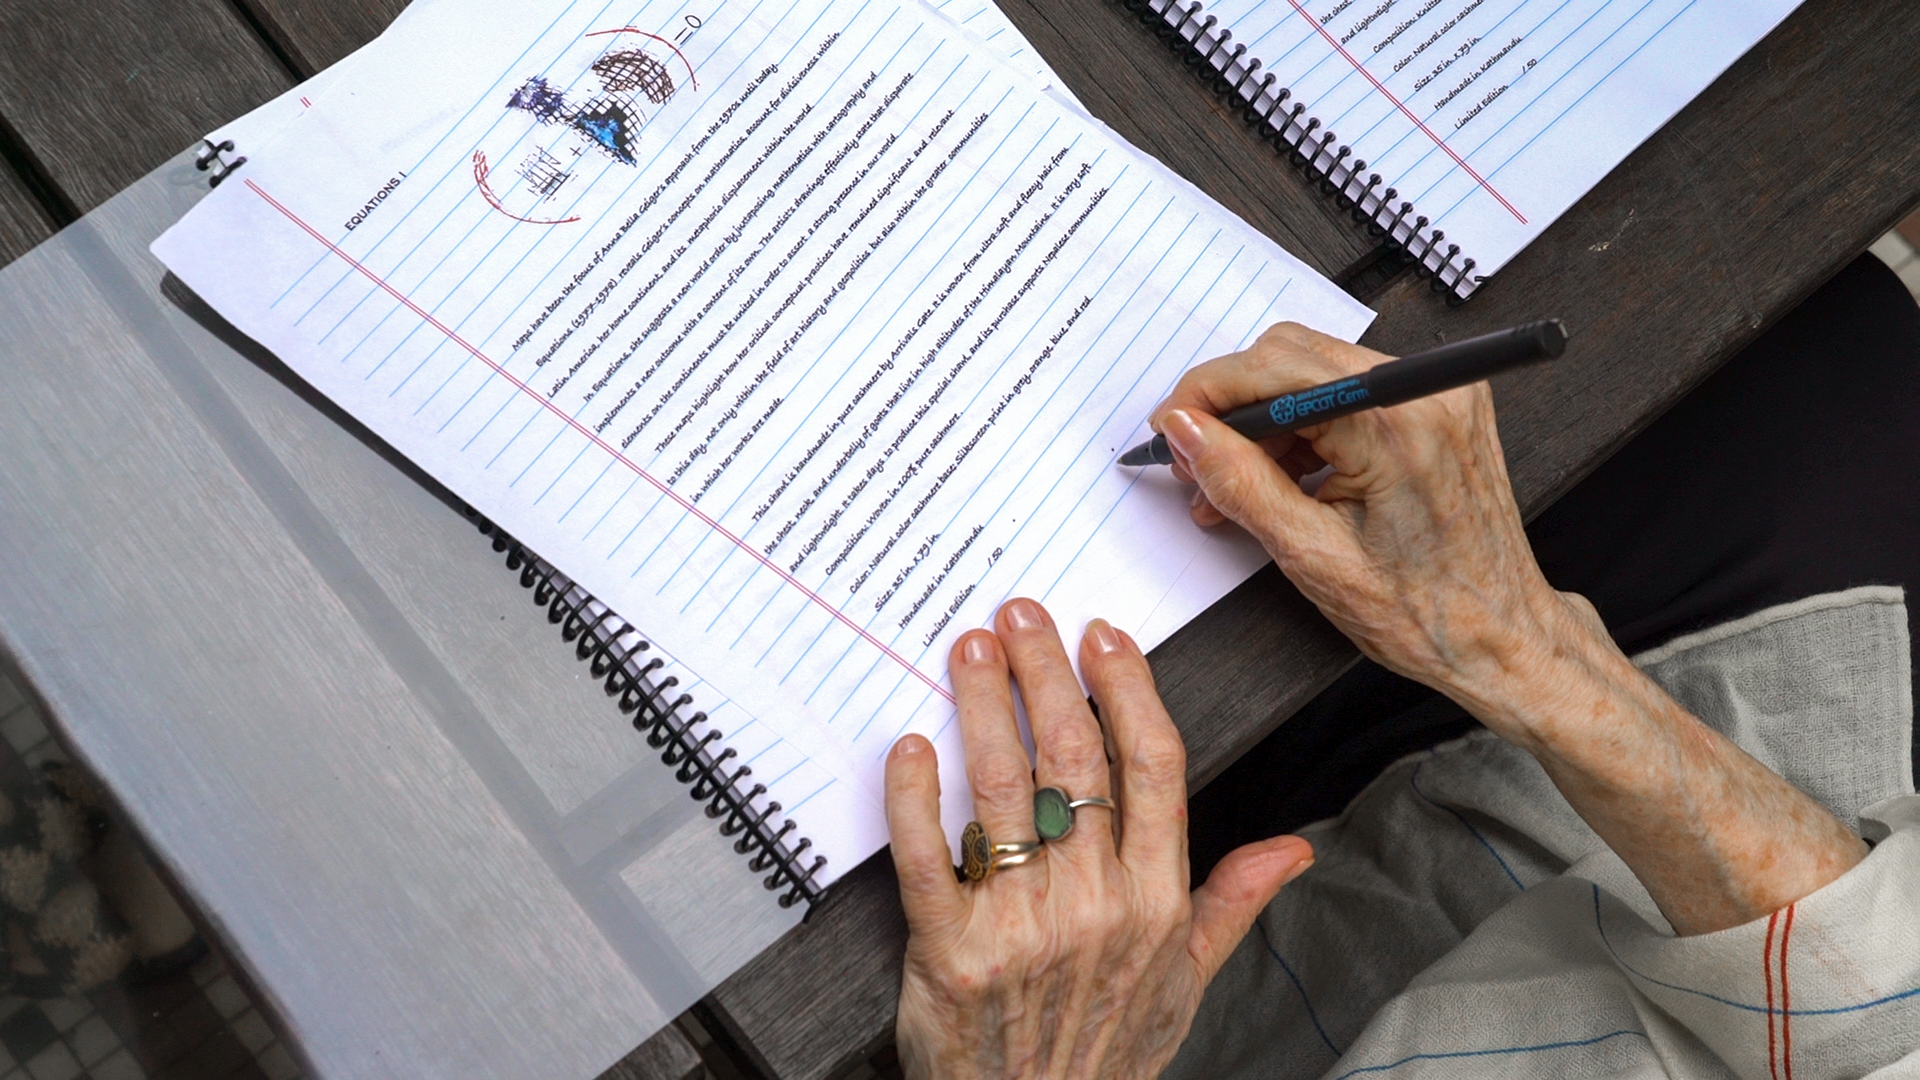 =0
EQUATIONS I
Maps have been the focus of Anna Bella Geiger's approach from the 1970s until today.
Equations (1977-1978) reveals Geiger's concepts on mathematics, account for divisiveness within
Latin America, her home continent, and its metaphoric displacement within the world.
In Equations, she suggests a new world order by juxtaposing mathematics with cartography and
implements a new outcome with a content of its own. The artist's drawings effectively state that disparate
elements on the continents must be united in order to assert a strong presence in our world.
These maps highlight how her critical conceptual practices have remained significant and relevant
to this day, not only within the field of art history and geopolitics but also within the greater communities
in which her works are made
This shawl is handmade in pure cashmere by Arrivals Gate. It is woven from ultra-soft and fleecy hair from
the chest, neck, and underbelly of goats that live in high altitudes of the Himalayan Mountains. It is very soft
and lightweight. It takes days to produce this special shawl, and its purchase supports Nepalese communities.
Composition: Woven in 100% pure cashmere.
Color: Natural color cashmere base; Silkscreen print in grey, orange, blue, and red
Size: 35 in. x 79 in.
Handmade in Kathmandu
Limited Edition /50
the chest
and lightweight
Composition: Knitted
Color: Natural color cashmere
Size: 35 in. x 79 in.
Handmade in Kathmandu
Limited Edition /50
Walt Disney World
EPCOT Cent